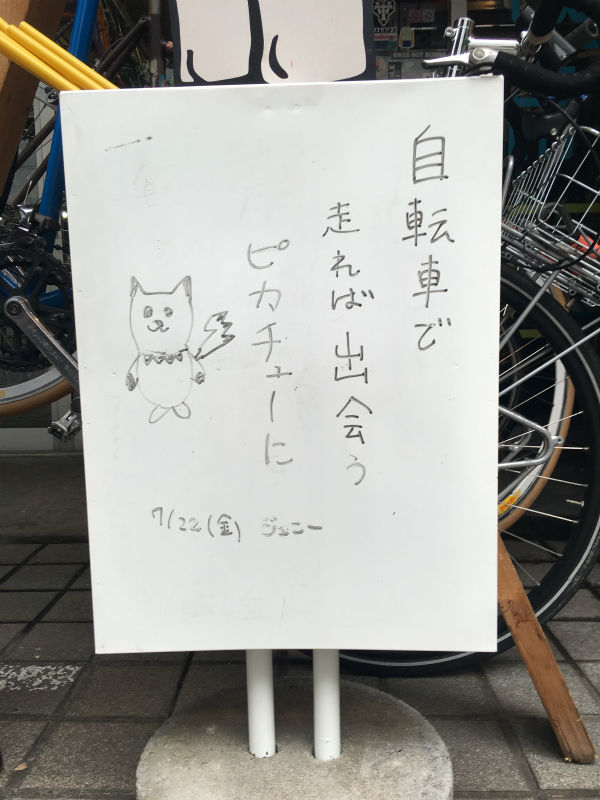 自転車で
走れば出会う
ピカチューに
7/22(金) ジェニー
BIKES NOT BOMBS